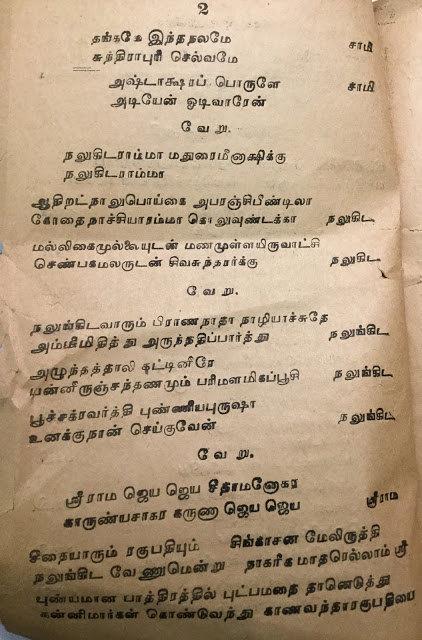 2
தங்கமே இந்தநலமே சாமி
சுந்திராபுரீ செல்வமே
அஷ்டாக்ஷரப் பொருளே சாமி
அடியேன் ஓடிவாரேன்
வேறு.
நலுகிடராம்மா மதுரைமீனாக்ஷிக்கு
நலுகிடராம்மா
ஆதிறட் நாலுபொய்கை அபரஞ்சிபீண்டிலா
கோதைநாச்சியாரம்மா கொலுவுண்டக்கா நலுகிட
மல்லிகைமுல்லையுடன் மணமுள்ளயிருவாட்சி
செண்பகமலருடன் சிவசுந்தரர்க்கு நலுகிட
வேறு.
நலுங்கிடவாரும் பிராணநாதா நாழியாச்சுதே
அம்மிமிதித்து அருந்ததிப்பார்த்து நலுங்கிட
அழுந்தத்தாலி கட்டினீரே
பன்னீருஞ்சந்தணமும் பரிமளமிகப்பூசி நலுங்கிட
பூச்சக்ரவர்த்தி புண்ணியபுருஷா
உனக்குநான் செய்குவேன் நலுங்கிட
வேறு.
ஸ்ரீராம ஜெய ஜெய சீதாமனோகர
காருண்யசாகர கருணா ஜெய ஜெய ஸ்ரீராம
சீதையாரும் ரகுபதியும் சிங்காசன மேலிருத்தி
நலுங்கிட வேணுமென்று நாகரீக மாதரெல்லாம் ஸ்ரீ
புண்யமான பாத்திரத்தில் புட்பமதை தானெடுத்து
கன்னிமார்கள் கொண்டுவந்து காணவந்தாரகுபதியை